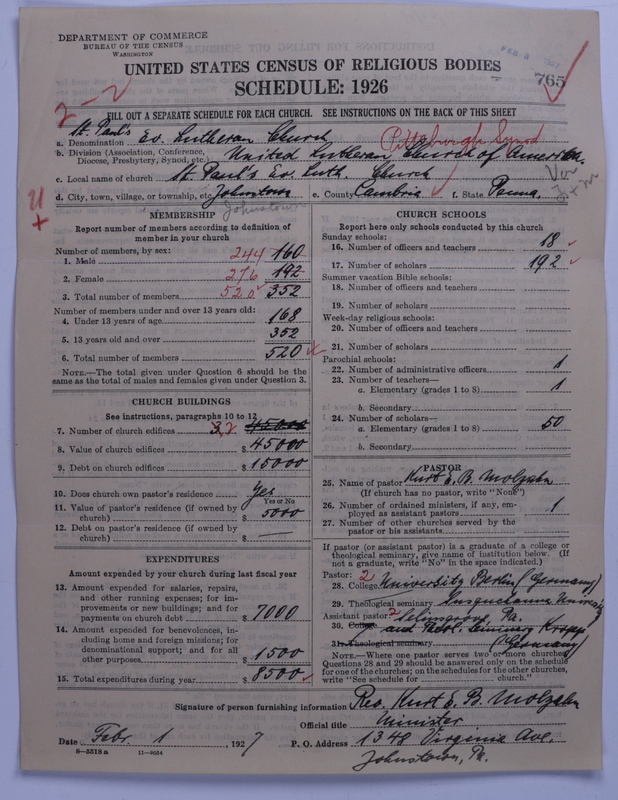 DEPARTMENT OF COMMERCE
BUREAU OF THE CENSUS
WASHINGTON
FEB 8
UNITED STATES CENSUS OF RELIGIOUS BODIES
SCHEDULE: 1926
765
2-2
FILL OUT A SEPARATE SCHEDULE FOR EACH CHURCH. SEE INSTRUCTIONS ON THE BACK OF THIS SHEET
a. Denomination St. Paul's Ev. Lutheran Church Pittsburgh Synod
b. Division (Association, Conference, Diocese, Presbytery, Synod, etc.) United Lutheran Church of America.
c. Local name of church St. Paul's Ev. Luth. Church
d. City, town, village, or township, etc. Johnstown e. County Cambria f. State Penna.
Johnstown
4
+
MEMBERSHIP
Report number of members according to definition of member in your church
Number of members, by sex:
1. Male 244 160
2. Female 276 192
3. Total number of members 520 352
Number of members under and over 13 years old:
4. Under 13 years of age 168
5. 13 years old and over 352
6. Total number of members 520
NOTE.—The total given under Question 6 should be the same as the total of males and females given under Question 3.
CHURCH BUILDINGS
See instructions, paragraphs 10 to 12
7. Number of church edifices 3 2 45000
8. Value of church edifices $ 45000
9. Debt on church edifices $ 15000
10. Does church own pastor's residence Yes
Yes or No
11. Value of pastor's residence (if owned by church) $ 5000
12. Debt on pastor's residence (if owned by church) $ —
EXPENDITURES
Amount expended by your church during last fiscal year
13. Amount expended for salaries, repairs, and other running expenses; for improvements or new buildings; and for payments on church debt $ 7000
14. Amount expended for benevolences, including home and foreign missions; for denominational support; and for all other purposes $ 1500
15. Total expenditures during year $ 8500
CHURCH SCHOOLS
Report here only schools conducted by this church
Sunday schools:
16. Number of officers and teachers 18
17. Number of scholars 192
Summer vacation Bible schools:
18. Number of officers and teachers
19. Number of scholars
Week-day religious schools:
20. Number of officers and teachers
21. Number of scholars
Parochial schools:
22. Number of administrative officers 1
23. Number of teachers—
a. Elementary (grades 1 to 8) 1
b. Secondary
24. Number of scholars—
a. Elementary (grades 1 to 8) 50
b. Secondary
PASTOR
25. Name of pastor Kurt E. B. Molzahn
(If church has no pastor, write "None")
26. Number of ordained ministers, if any, employed as assistant pastors 1
27. Number of other churches served by the pastor or his assistants
If pastor (or assistant pastor) is a graduate of a college or theological seminary, give name of institution below. (If not a graduate, write "No" in the space indicated.)
Pastor: 2
28. College University Berlin (Germany)
29. Theological seminary Susquehanna University
Assistant pastor: 2 Selinsgrove, Pa.
30. College and Theol. Seminary Kropp
31. Theological seminary (Germany)
NOTE.—Where one pastor serves two or more churches, Questions 28 and 29 should be answered only on the schedule for one of the churches; on the schedules for the other churches, write "See schedule for church."
Signature of person furnishing information Rev. Kurt E. B. Molzahn
Official title Minister
Date Febr. 1, 1927 P. O. Address 1348 Virginia Ave.
Johnstown, Pa.
8—5318a 11—9034